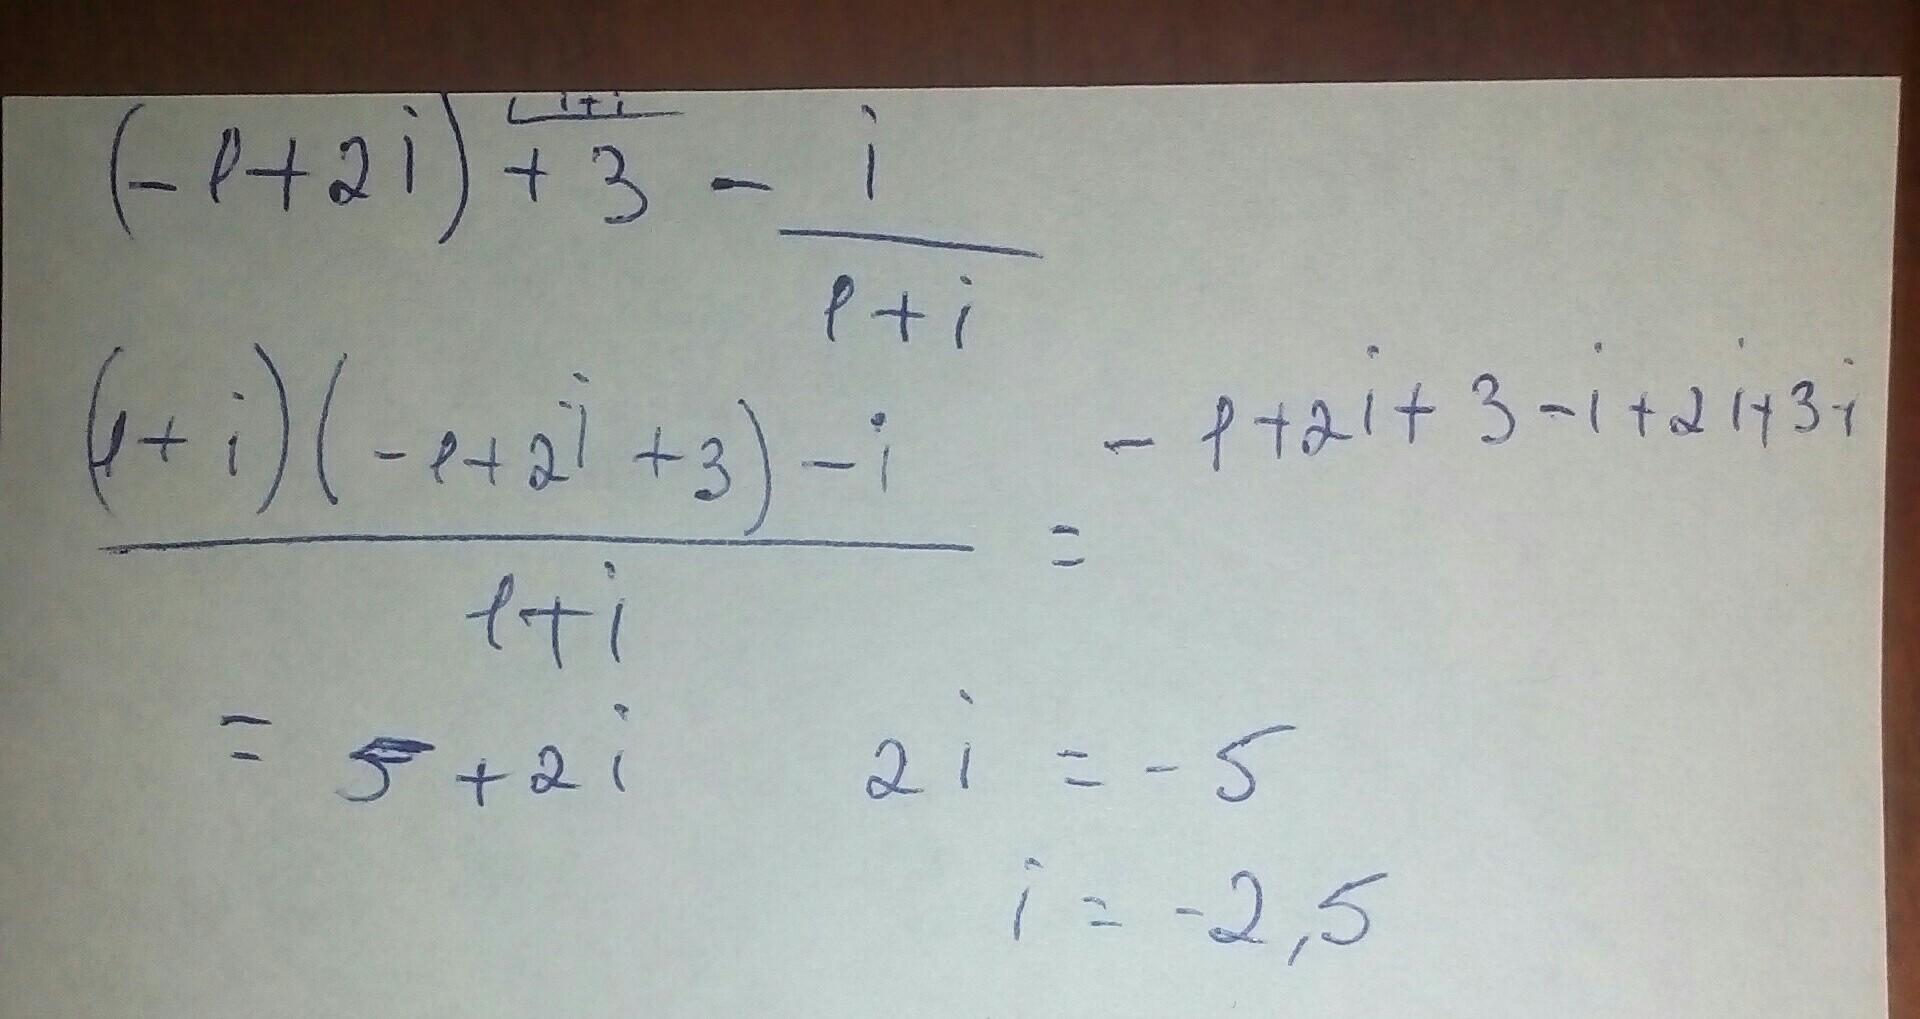 1+i
(-1+2i) + 3 - i
1+i
(1+i)(-1+2i+3)-i = -1+2i+3-i+2i+3i
1+i
= 5+2i 2i = -5
i = -2,5